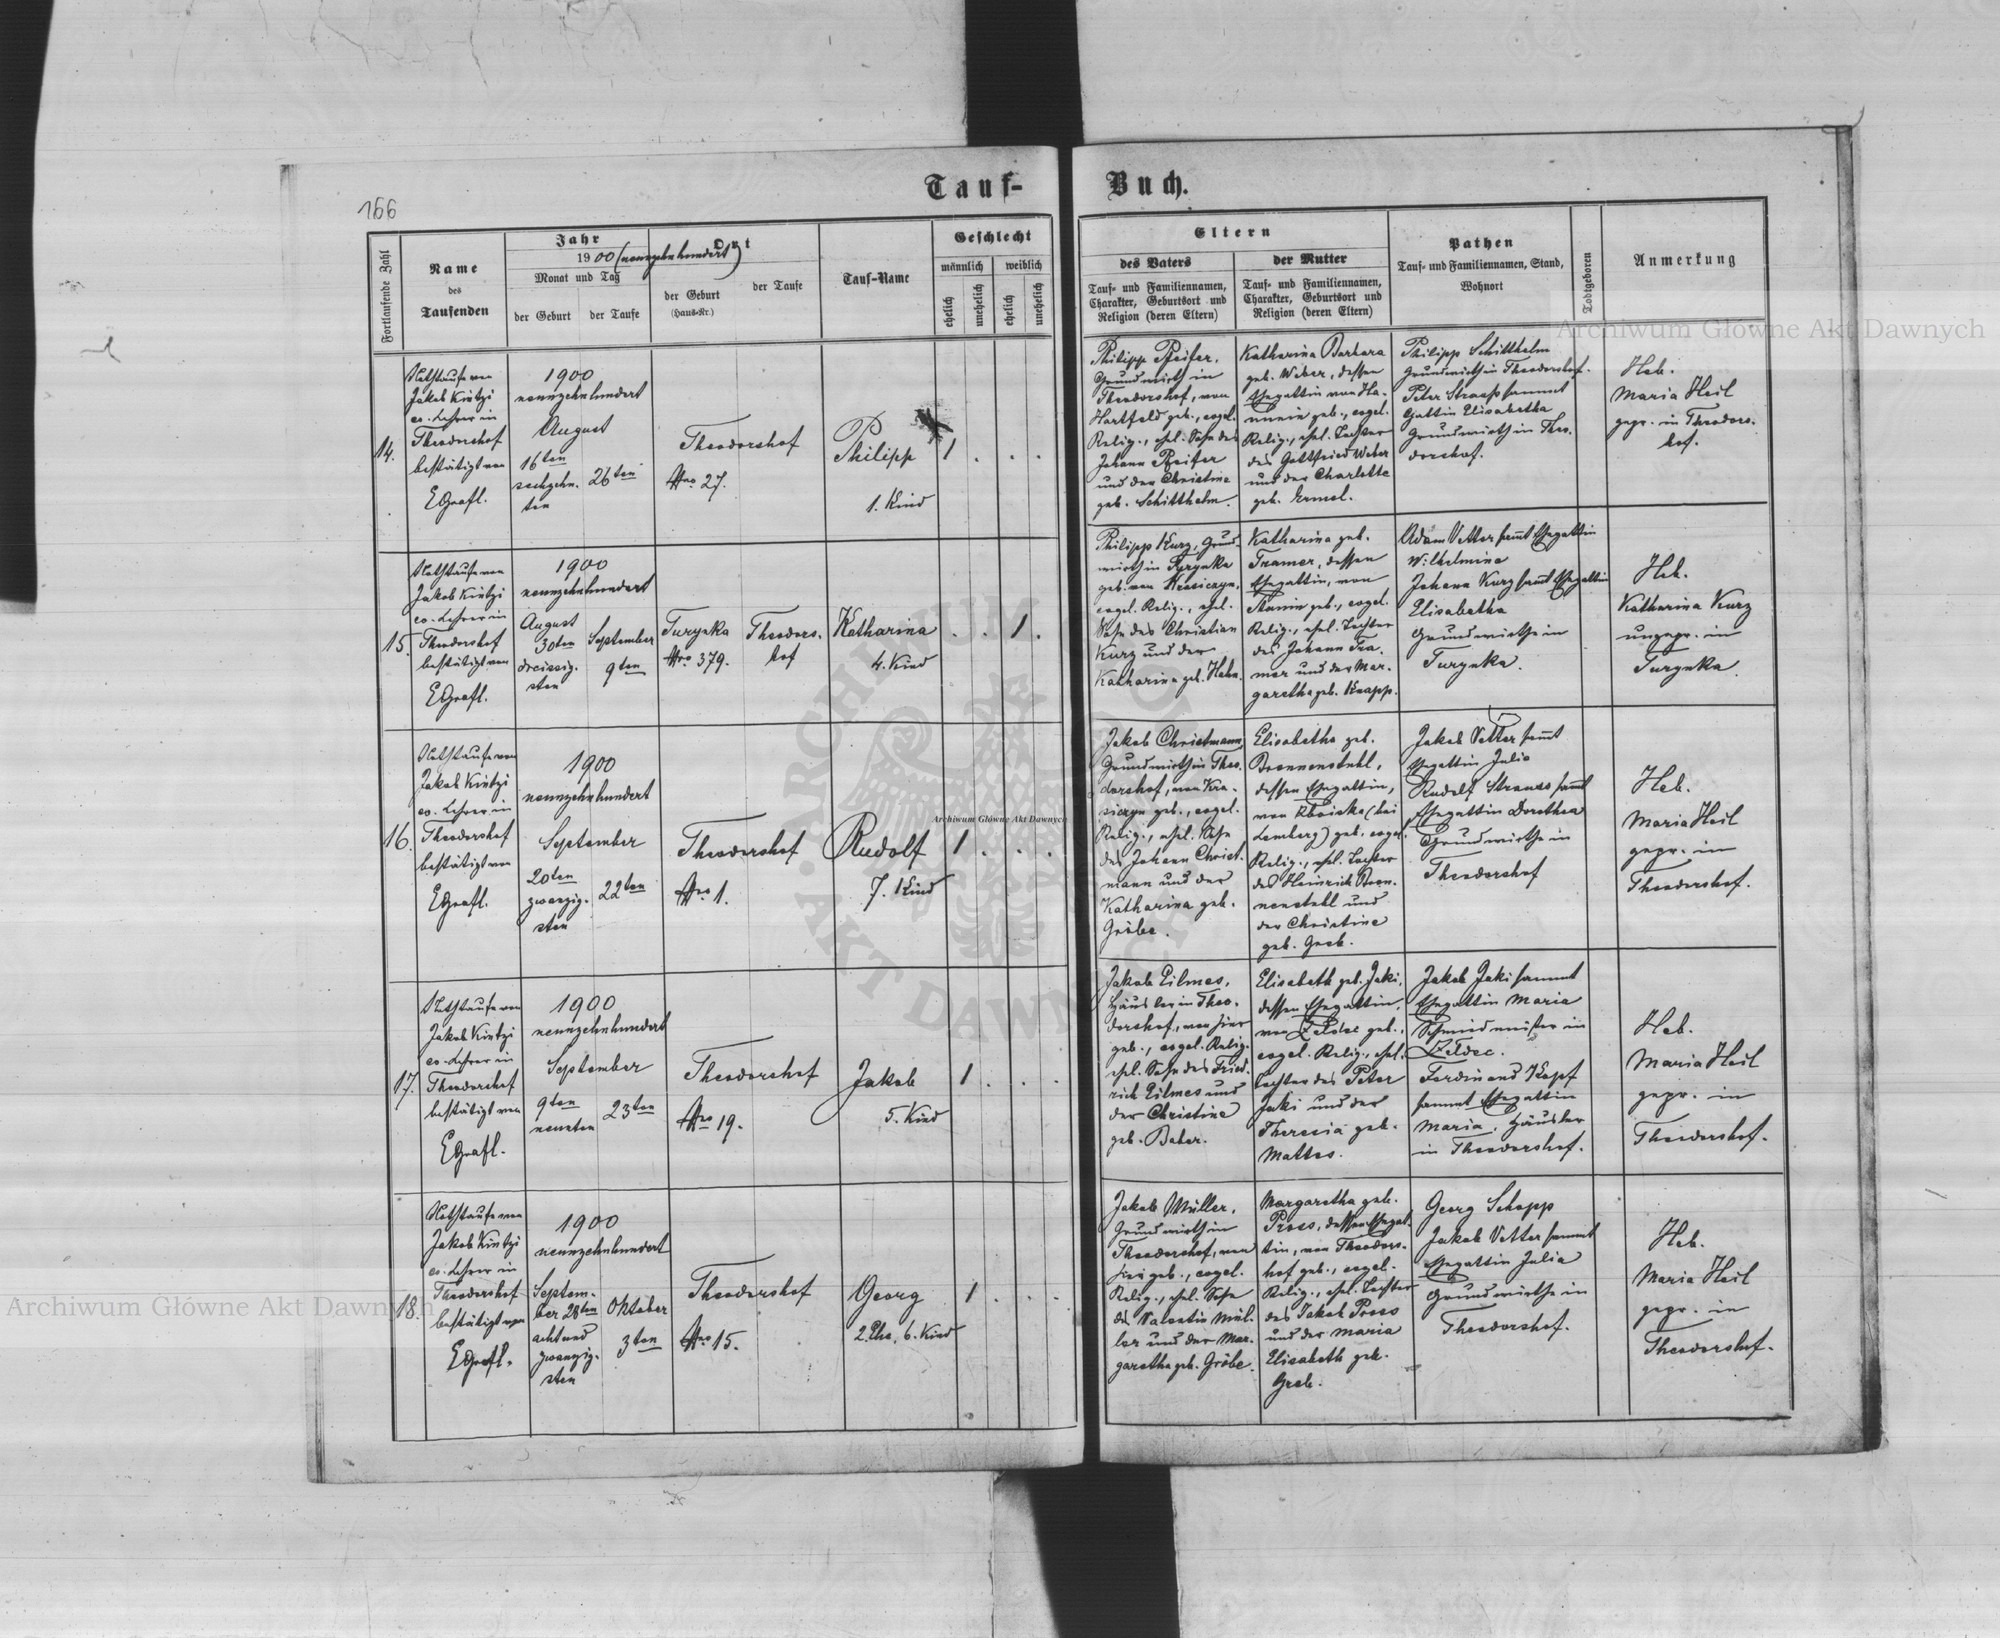 Tauf-
Buch.
166
Fortlaufende Zahl
Name
des
Taufenden
Jahr
1900 (neunzehnhundert)
Monat und Tag
der Geburt
der Taufe
Ort
der Geburt
(Haus-Nr.)
der Taufe
Tauf-Name
Geschlecht
männlich
weiblich
ehelich
unehelich
ehelich
unehelich
Eltern
des Vaters
Tauf- und Familiennamen,
Charakter, Geburtsort und
Religion (deren Eltern)
der Mutter
Tauf- und Familiennamen,
Charakter, Geburtsort und
Religion (deren Eltern)
Pathen
Tauf- und Familiennamen, Stand,
Wohnort
Todtgeboren
Anmerkung
14.
Nothtaufe von
Jakob Kintzi
ev. Lehrer in
Theodorshof
bestätigt von
1900
neunzehnhundert
August
16ten
sechzehn-
ten
26ten
Theodorshof
Nro 27.
Philipp
1. Kind
1 . . .
Philipp Pfeifer,
Grundwirth in
Theodorshof, von
Hartfeld geb., evgel.
Relig., ehel. Sohn des
Johann Pfeifer
und der Christine
geb. Schitthelm.
Katharina Barbara
geb. Weber, dessen
Ehegattin von Ha-
nunin geb., evgel.
Relig., ehel. Tochter
des Gottfried Weber
und der Charlotte
geb. Ermel.
Philipp Schitthelm
Grundwirth in Theodorshof.
Peter Strauss sammt
Gattin Elisabetha
Grundwirth in Theo-
dorshof.
Heb.
Maria Heil
gepr. in Theodors-
hof.
15.
Nothtaufe von
Jakob Kintzi
ev. Lehrer in
Theodorshof
bestätigt von
1900
neunzehnhundert
August
30ten
dreissig-
sten
September
9ten
Turynka
Nro 379.
Theodors-
hof
Katharina
4. Kind
. . 1 .
Philipp Kurz, Grund-
wirth in Turynka
geb. von Krasiczyn,
evgel. Relig., ehel.
Sohn des Christian
Kurz und der
Katharina geb. Hahn.
Katharina geb.
Tramer, dessen
Ehegattin, von
Stanin geb., evgel.
Relig., ehel. Tochter
des Johann Tra-
mer und der Mar-
garetha geb. Knapp.
Adam Vetter samt Ehegattin
Wilhelmine
Johann Kurz samt Ehegattin
Elisabetha
Grundwirthe in
Turynka.
Heb.
Katharina Kurz
ungepr. in
Turynka.
16.
Nothtaufe von
Jakob Kintzi
ev. Lehrer in
Theodorshof
bestätigt von
1900
neunzehnhundert
September
20ten
zwanzig-
sten
22ten
Theodorshof
Nro 1.
Rudolf
7. Kind
1 . . .
Jakob Christmann,
Grundwirth in Theo-
dorshof, von Kra-
siczyn geb., evgel.
Relig., ehel. Sohn
des Johann Christ-
mann und der
Katharina geb.
Gröbe.
Elisabetha geb.
Bronnenstuhl,
dessen Ehegattin,
von Kboiska (bei
Lemberg) geb., evgel.
Relig., ehel. Tochter
des Heinrich Bron-
nenstuhl und
der Christine
geb. Greb.
Jakob Vetter samt
Ehegattin Julie
Rudolf Strauss samt
Ehegattin Dorothea
Grundwirthe in
Theodorshof
Heb.
Maria Heil
gepr. in
Theodorshof.
17.
Nothtaufe von
Jakob Kintzi
ev. Lehrer in
Theodorshof
bestätigt von
1900
neunzehnhundert
September
9ten
neunten
23ten
Theodorshof
Nro 19.
Jakob
5. Kind
1 . . .
Jakob Eilmes,
Häusler in Theo-
dorshof, von hier
geb., evgel. Relig.
ehel. Sohn des Fried-
rich Eilmes und
der Christine
geb. Baber.
Elisabeth geb. Jaki,
dessen Ehegattin,
von Zeldec geb.,
evgel. Relig., ehel.
Tochter des Peter
Jaki und der
Theresia geb.
Mattes.
Jakob Jaki sammt
Ehegattin Maria
Schmiedmeister in
Zeldec.
Ferdinand Kopf
sammt Ehegattin
Maria, Häusler
in Theodorshof.
Heb.
Maria Heil
gepr. in
Theodorshof.
18.
Nothtaufe von
Jakob Kintzi
ev. Lehrer in
Theodorshof
bestätigt von
1900
neunzehnhundert
Septem-
ber 28ten
achtund
zwanzig-
sten
Oktober
3ten
Theodorshof
Nro 15.
Georg
2. Ehe, 6. Kind
1 . . .
Jakob Müller,
Grundwirth in
Theodorshof, von
hier geb., evgel.
Relig., ehel. Sohn
des Valentin Mül-
ler und der Mar-
garetha geb. Gröbe.
Margaretha geb.
Pross, dessen Ehegat-
tin, von Theodors-
hof geb., evgel.
Relig., ehel. Tochter
des Jakob Pross
und der Maria
Elisabeth geb.
Greb.
Georg Schopp
Jakob Vetter sammt
Ehegattin Julia
Grundwirthe in
Theodorshof.
Heb.
Maria Heil
gepr. in
Theodorshof.
Archiwum Główne Akt Dawnych
Archiwum Główne Akt Dawnych
Archiwum Główne Akt Dawnych